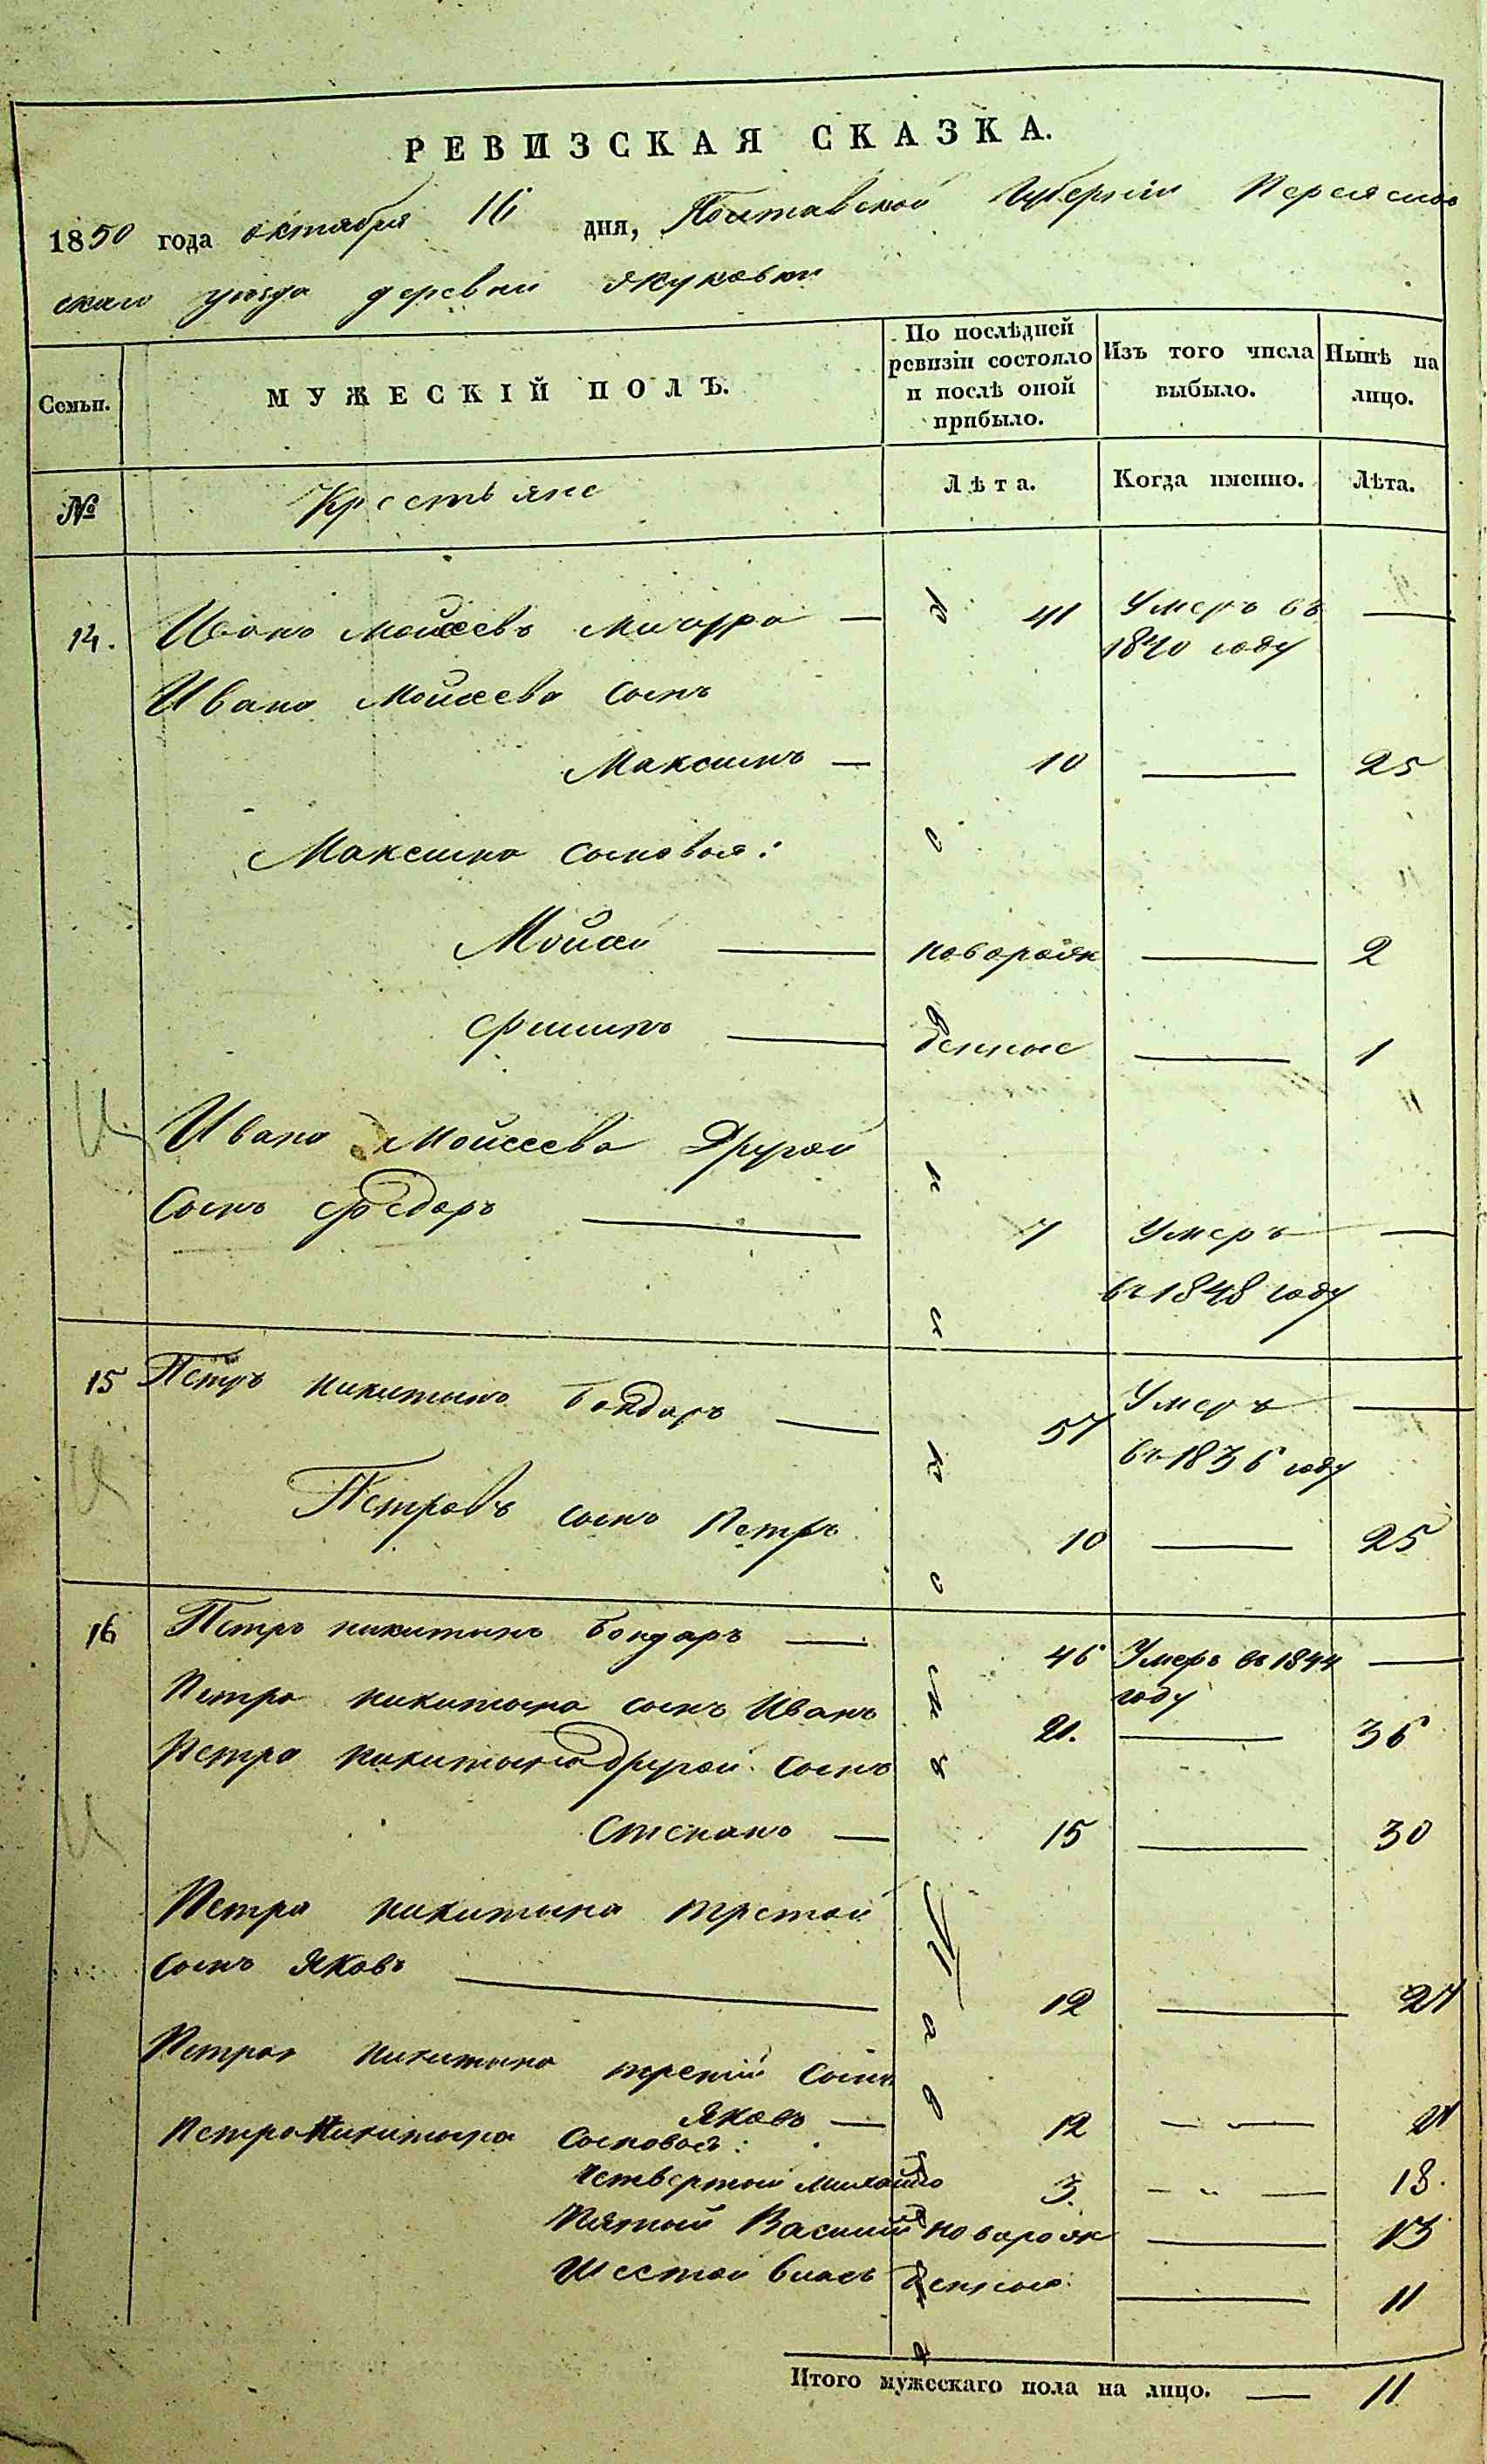 РЕВИЗСКАЯ СКАЗКА.
1850 года октября 16 дня, Полтавской Губернiи Переяслов
скаго уѣзда деревни Якуковки
Семьи.
МУЖЕСКIЙ ПОЛЪ.
По послѣдней ревизiи состояло и послѣ оной прибыло.
Изъ того числа выбыло.
Нынѣ на лицо.
№
Крестьяне
Лѣта.
Когда именно.
Лѣта.
14. Иванъ Моисеевъ — 41 Умеръ въ 1840 году —
Ивана Моисеева сынъ
Максимъ — 10 — 25
Максима сыновья:
Мойсей — новорож — 2
Филипъ — денные — 1
Ивана Моисеева Другой
Сынъ Федоръ — 7 Умеръ —
въ 1848 году
15 Петръ Никитинъ Бондаръ — 57 Умеръ —
въ 1836 году
Петровъ сынъ Петръ 10 — 25
16 Петръ Никитинъ Бондаръ — 46 Умеръ въ 1844 году —
Петра Никитина сынъ Иванъ 21. — 36
Петра Никитина другой сынъ
Степанъ — 15 — 30
Петра Никитина третой
сынъ Яковъ — 12 — 27
Петра Никитина третiй Сынъ
Яковъ — 12 — „ — 27
Петра Никитина Сыновья:
Четвертый Михайло 3. — „ — 18.
Пятый Василий новорож — 13
Шестой Власъ денные: — 11
Итого мужескаго пола на лицо. — 11